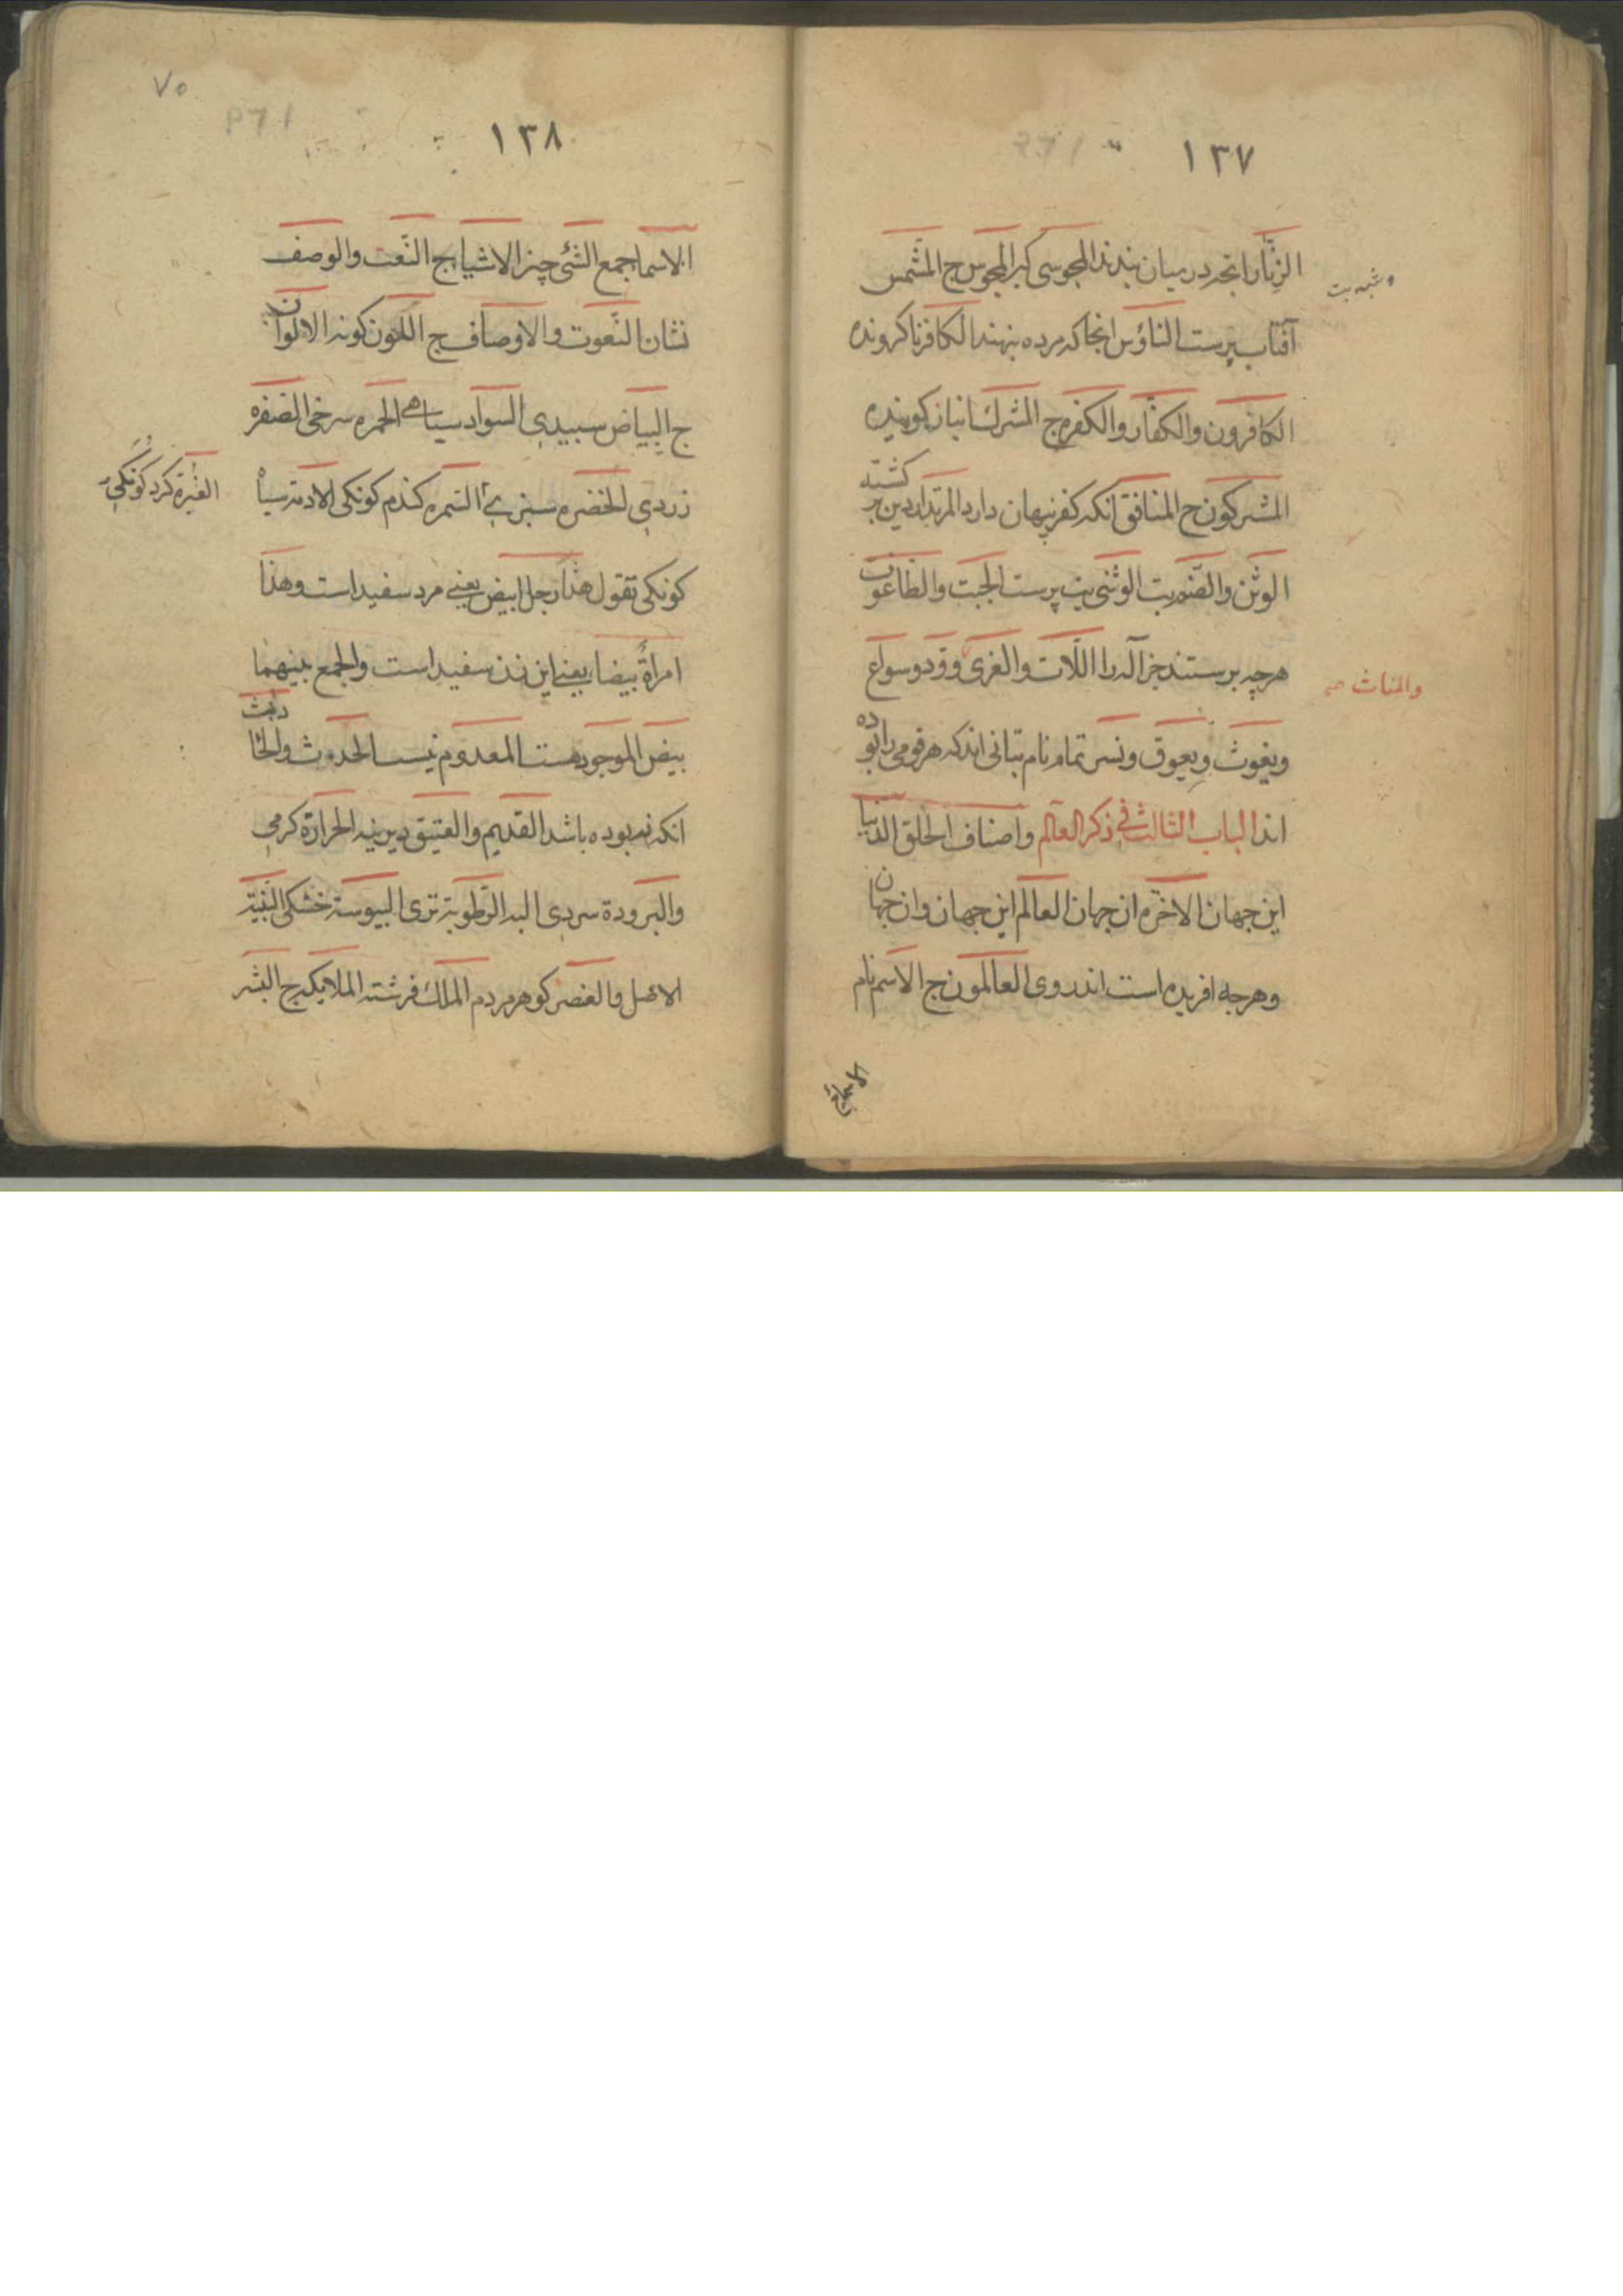 ١٣٧
الزنّار انچه در میان بندند المجوسی کبر المجوس ج المشمس
آفتاب پرست الناؤس انجا که مرده بنهند الکافر ناکرونده
الکافرون والکفّار والکفره ج المشرک انباز کوینده
المشرکون ج المنافق آنکه کفر پنهان دارد المرتد از دین بر کشته
الوثن والصّنم بت الوثنی بت پرست الجبت والطاغوت
هرچه پرستند جز الله را اللّات والعزی وودّ وسواع
والمنات صح
ویغوث ویعوق ونسر تمام نام بتانی اند که هر قومی را بوده
اند الباب الثالث فی ذکر العالم واصناف الخلق الدّنیا
این جهان الاخره ان جهان العالم این جهان وان جهان
وهرچه افریده است اندر وی العالمون ج الاسم نام
الاسماء
٧٥
١٣٨
الاسما جمع الشّئ چیز الاشیا ج النّعت والوصف
نشان النّعوت والاوصاف ج اللون کونه الالوان
ج البیاض سبیدی السواد سیاهی الحمره سرخی الصفره
زردی الخضره سبزی السّمره کندم کونکی الادمة سیاه
الغبرة کرد کونکی
کونکی تقول هذا رجل ابیض یعنی مرد سفید است وهذا
امراةٌ بیضاء یعنی این زن سفید است والجمع بینهما
بیض الموجود هست المعدوم نیست الحدوث والحادث
انکه نه بوده باشد القدیم والعتیق دیرینه الحرارة کرمی
والبرودة سردی البلة الرّطوبة تری الیبوسة خشکی البنیة
الاصل والعنصر کوهر مردم الملک فرشته الملایکه ج البشر